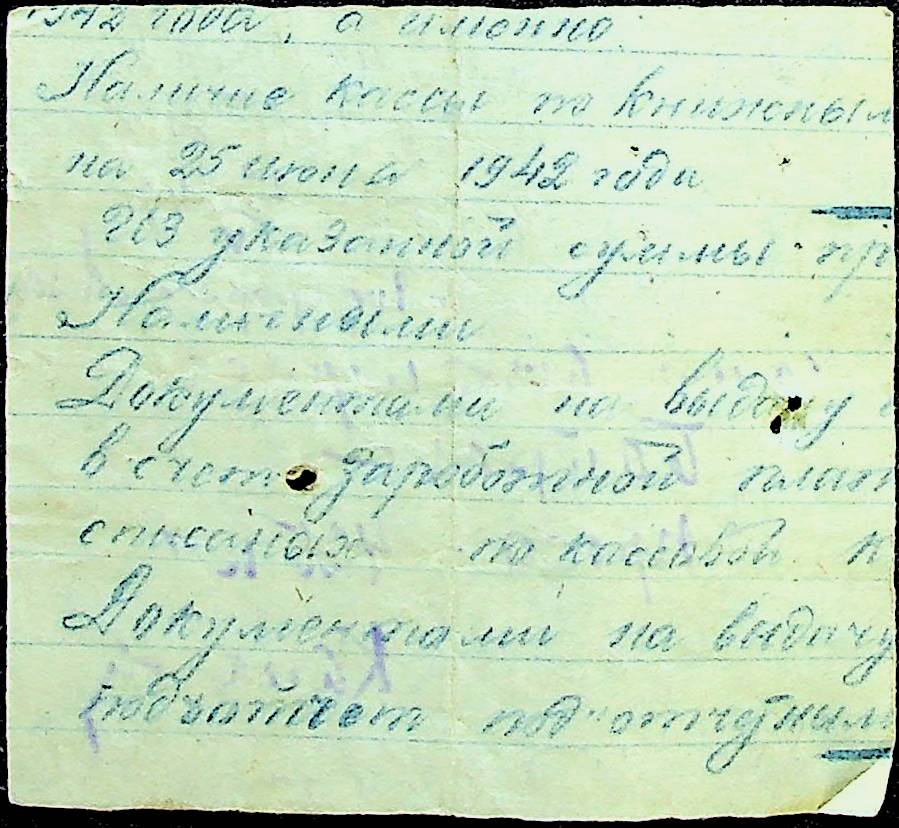 1942 года, а именно
Наличие кассы по книжным
на 25 июня 1942 года
Из указанной суммы пр
Наличными
Документами на выдачу
в счет заработной плат
списаных по кассовой к
Документами на выдачу
подъотчет подъотчетным